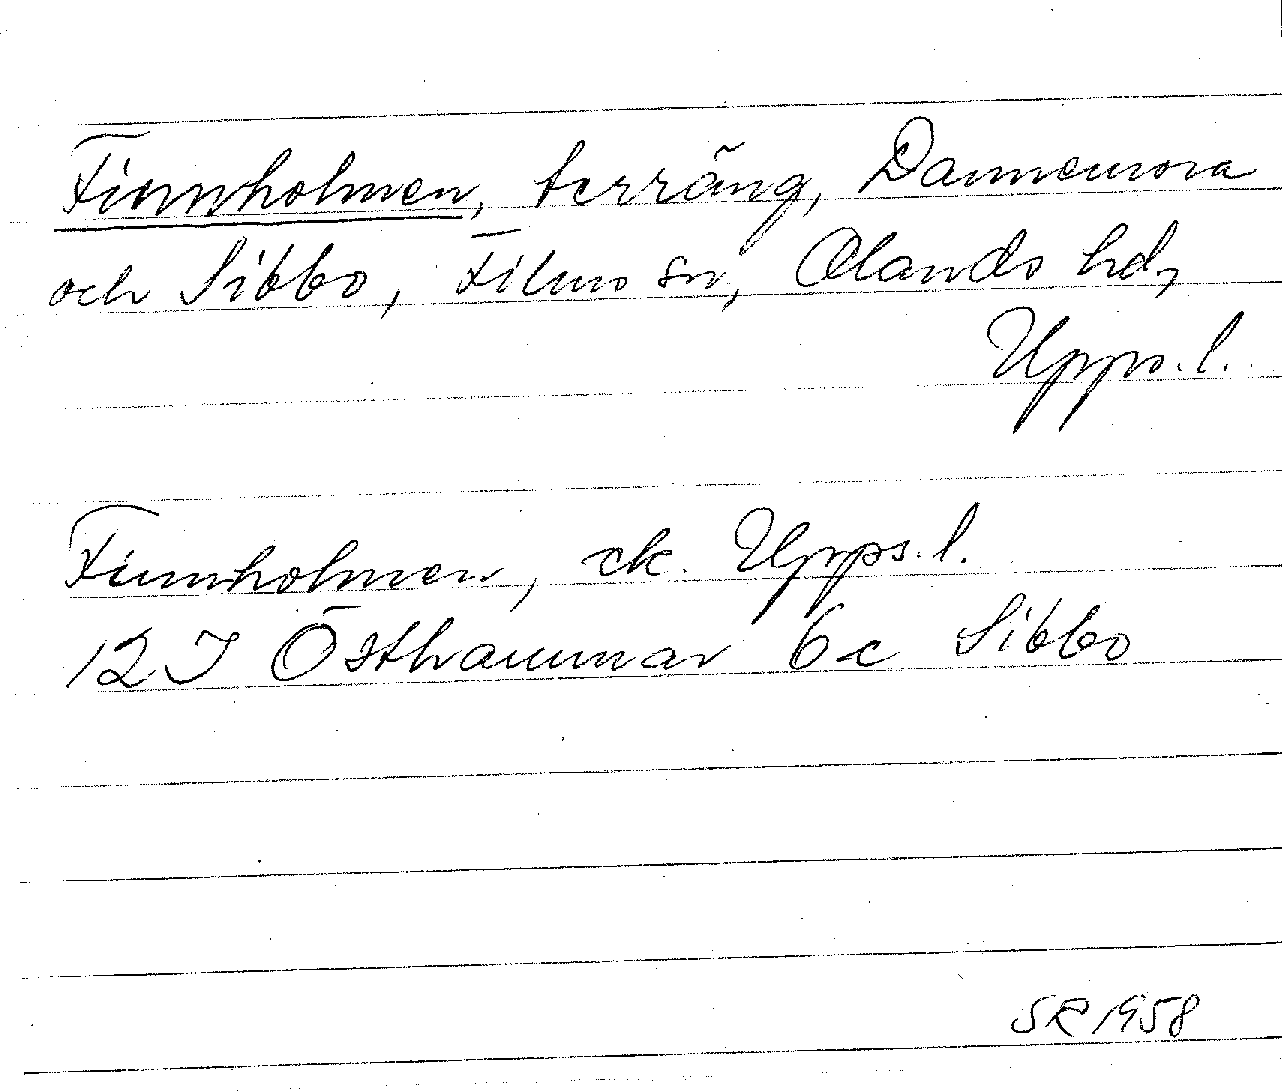 Finnholmen, terräng, Dannemora
och Sibbo, Films sn, Olands hd,
Upps. l.
Finnholmen, ek. Upps. l.
12I Östhammar 6c Sibbo
SR 1958